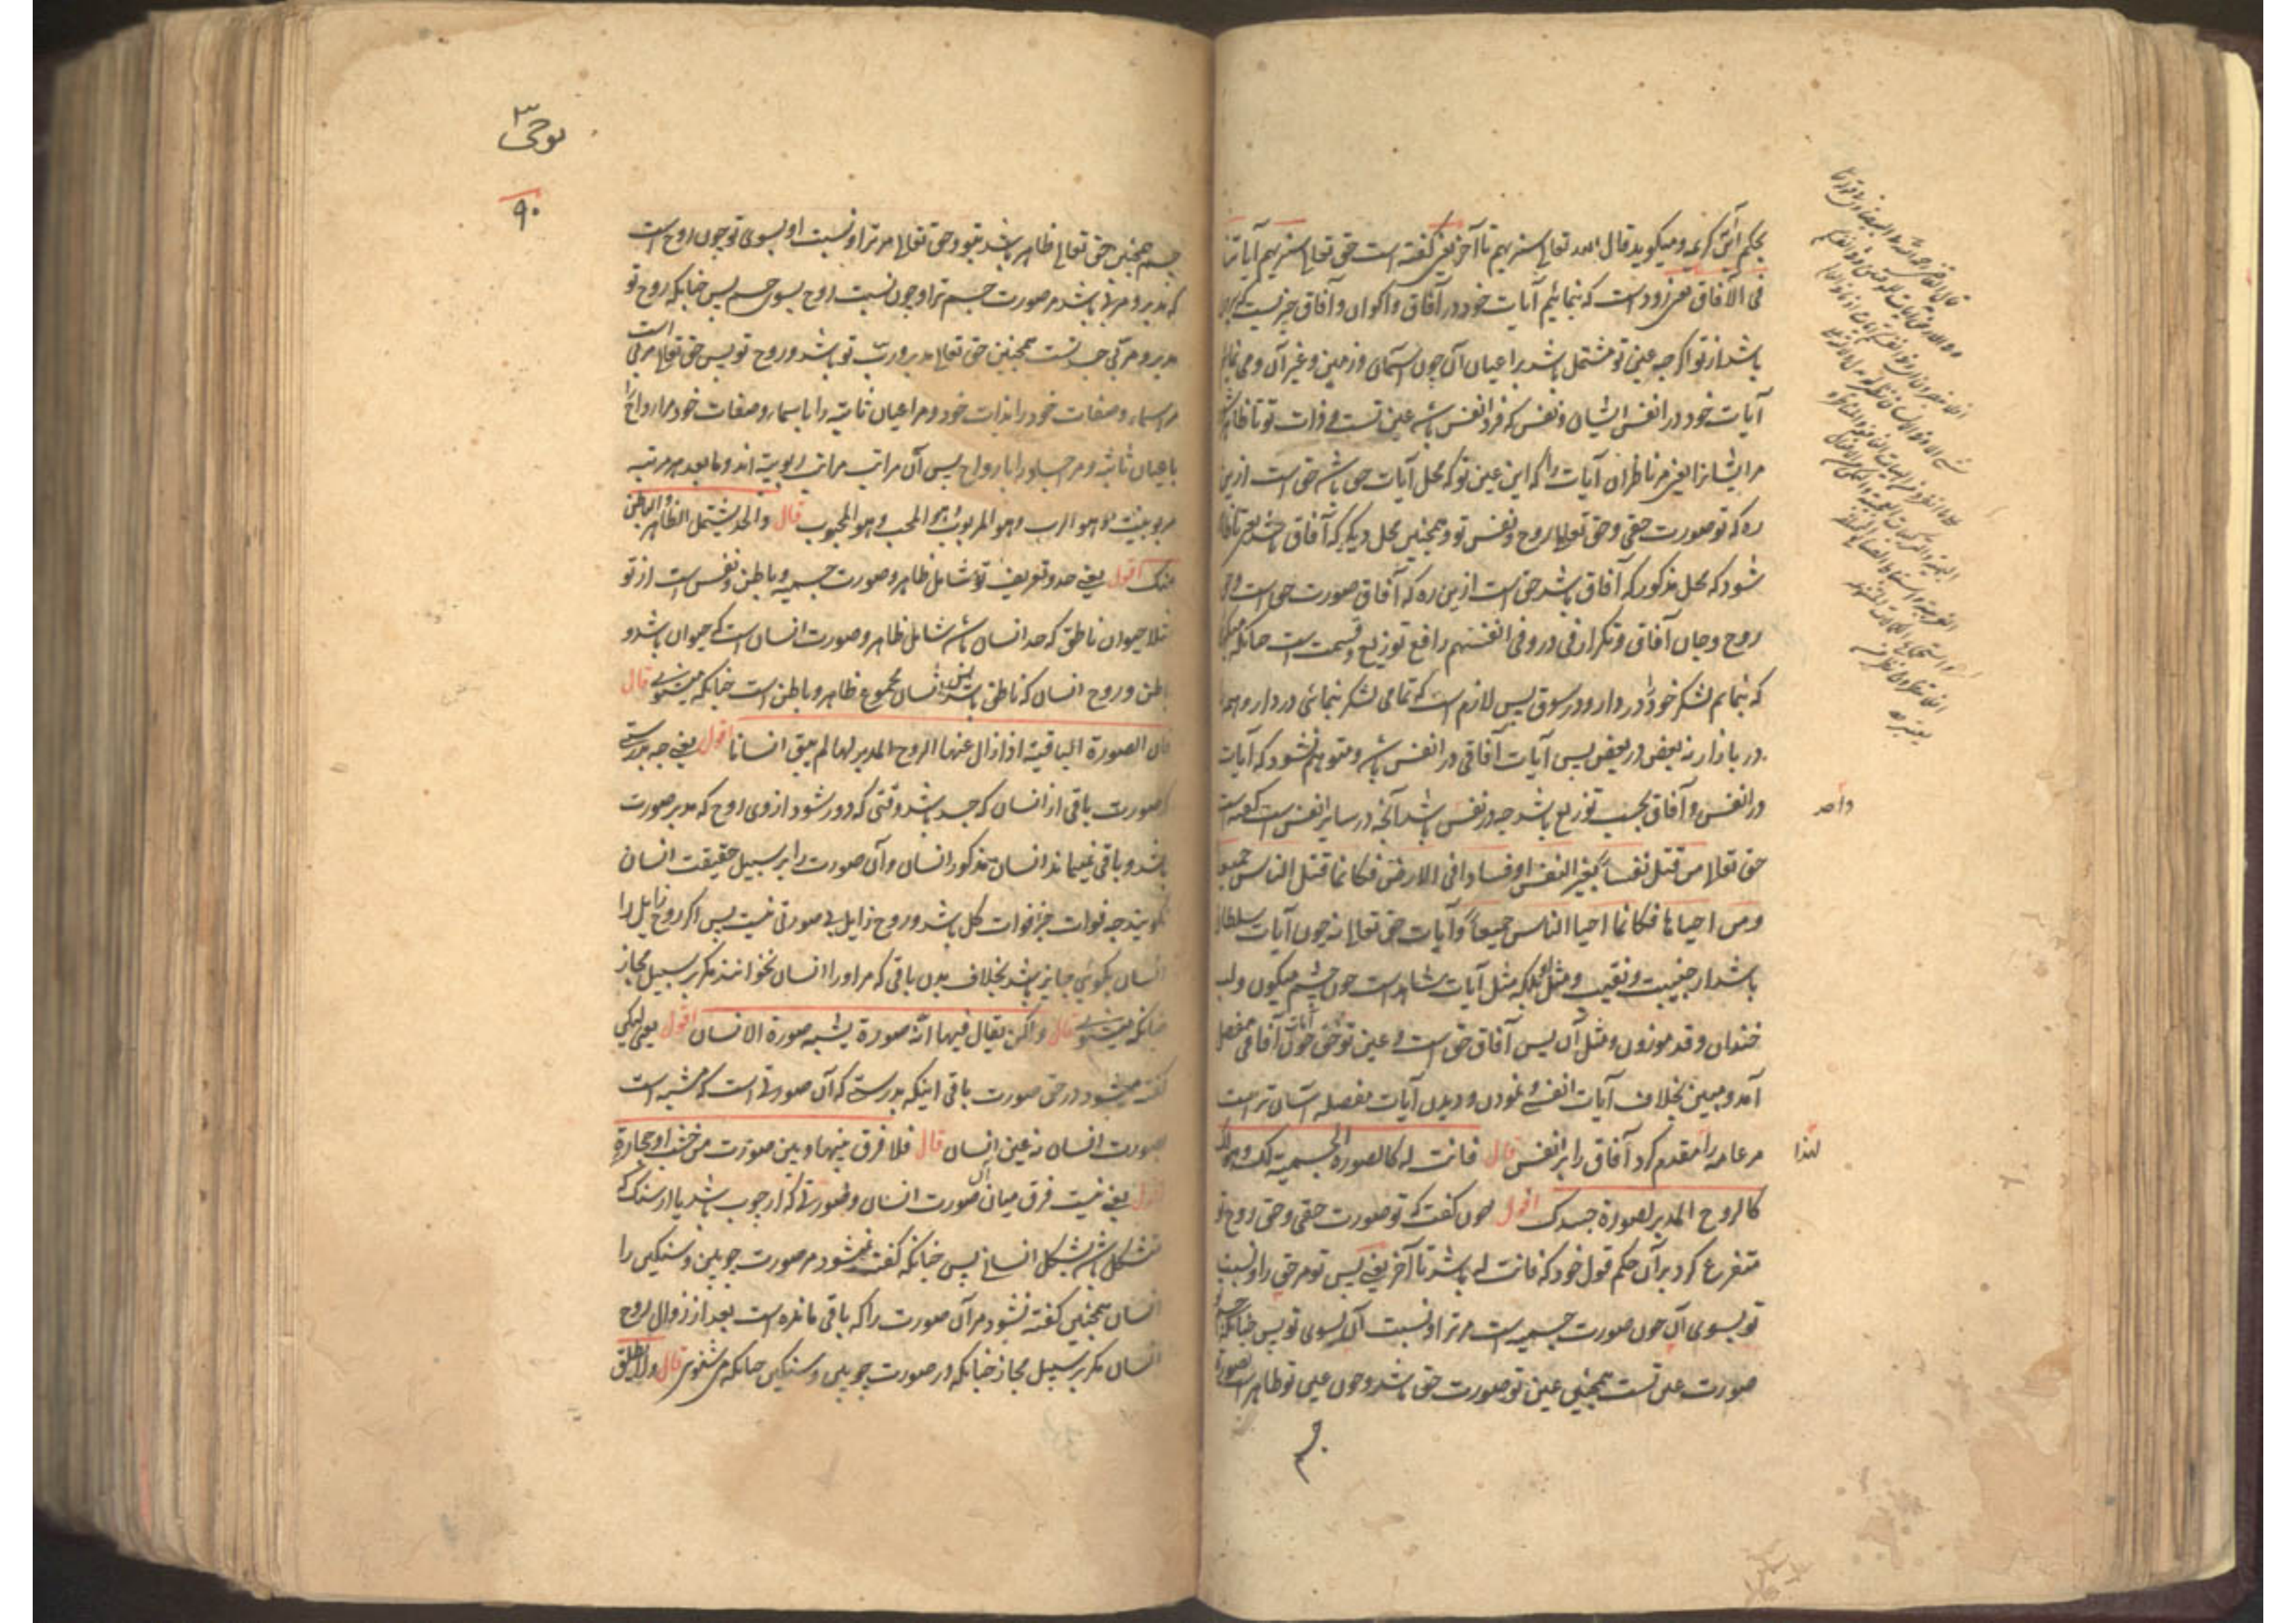 بحکم این کریمه و میکوید قال الله تعالی سنریهم تا آخر یعنی گفته است حق تعالی سنریهم آیاتنا
فی الآفاق یعنی زود است که بنمائیم آیات خود در آفاق و اکوان و آفاق چیزیست که
باشد از تو اکرچه عین تو مشتمل باشد بر اعیان آن چون آسمان و زمین و غیر آن و می نمایم
آیات خود در انفس ایشان و نفس که فرد انفس باشد عین تست و ذات تو تا ظاهر شود
مر ایشانرا یعنی مر ناظران آیات را که این عین تو که محل آیات حق باشد حق است ازین
ره که تو صورت حقی و حق تعالی روح و نفس تو و همچنین محل دیکر که آفاق باشد یعنی تا ظاهر
شود که محل مذکور که آفاق باشد حق است ازین ره که آفاق صورت حق است و حق
روح و جان آفاق و تکرار فی در و فی انفسهم رافع توزیع و قسمت است چنانکه
که بنمایم لشکر خود را در دار و در سوق پس لازم است که تمامی لشکر بنمائی در دار و هم
در بازار نه بعض در بعض پس آیات آفاقی در انفس باشد و متوهم نشود که آیات
در انفس و آفاق بحسب توزیع باشد چه در نفس باشد آنچه در سایر انفس است گفته است
واحد
حق تعالی من قتل نفسا بغیر النفس او فسادا فی الارض فکانما قتل الناس جمیعا
و من احیاها فکانما احیا الناس جمیعا و آیات حق تعالی نه چون آیات سلطان
باشد از جنیبت و نقیب و مثل او بلکه مثل آیات شاهد است چون چشم میکون و لب
خندان و قد موزون و مثل آن پس آفاق حق است و عین تو حق چون آیات آفاقی مفصل
آمد و مبین بخلاف آیات انفسی و نمودن و دیدن آیات مفصله آسان تر است
مر عامه را مقدم کرد آفاق را بر انفس قال فانت له کالصورة الجسمیة لک و هو لک
لهذا
کالروح المدبر لصورة جسدک اقول چون گفت که تو صورت حقی و حق روح تو
متفرع کرد بر آن حکم قول خود که فانت له باشد تا آخر یعنی پس تو مر حق را و نسبت
تو بسوی آن چون صورت جسمیه است مر ترا و نسبت آن بسوی تو پس چنانکه جسم
صورت عین تست همچنین عین تو صورت حق باشد و چون عین تو ظاهر است بصورت
جسم

نوحی ۳
۹۰
جسم همچنین حق تعالی ظاهر باشد بتو و حق تعالی مر ترا و نسبت او بسوی تو چون روح است
که مدبر و مربی باشد مر صورت جسم ترا و چون نسبت روح بسوی جسم پس چنانکه روح تو
مدبر و مربی جسد تست همچنین حق تعالی مدبر و رب تو باشد و روح تو پس حق تعالی مربی است
مر اسماء و صفات خود را بذات خود و مر اعیان ثابته را باسماء و صفات خود مر ارواح را
باعیان ثابته و مر اجساد را بارواح پس آن مراتب مراتب ربوبیة اند و ما بعد هر مرتبه
مربوبیت فهو الرب و هو المربوب و هو المحب و هو المحبوب قال و الحد یشتمل الظاهر و الباطن
منک اقول یعنی حد و تعریف تو شامل ظاهر و صورت جسمیه و باطن و نفس است از تو
مثلا حیوان ناطق که حد انسان باشد شامل ظاهر و صورت انسان است که حیوان باشد و
باطن و روح انسان که ناطق باشد پس انسان مجموع ظاهر و باطن است چنانکه میشنوی قال
فان الصورة الباقیة اذا زال عنها الروح المدبر لها لم یبق انسانا اقول یعنی چه بدرستی
که صورت باقی از انسان که جسد باشد وقتی که دور شود از وی روح که مدبر صورت
باشد و باقی نمیماند انسان مذکور انسان و آن صورت را بر سبیل حقیقت انسان
نکویند چه فوات جزء فوات کل باشد و روح زایل بی صورتی نیست پس اکر روح زایل را
انسان بکوئی جایز باشد بخلاف بدن باقی که مر او را انسان نخوانند مکر بر سبیل مجاز
چنانکه میشنوی قال و لکن یقال فیها انه صورة یشبه صورة الانسان اقول یعنی لیکن
گفته میشود در حق صورت باقی اینکه بدرستی که آن صورتی است که مشبه است
بصورت انسان نه عین انسان قال فلا فرق بینها و بین صورت من خشب او حجارة
اقول یعنی نیست فرق میان آن صورت انسان و صورتی که از چوب باشد یا از سنک که
متشکل باشد بشکل انسانی پس چنانکه گفته نمیشود مر صورت چوبین و سنکین را
انسان همچنین گفته نشود مر آن صورت را که باقی مانده است بعد از زوال روح
انسان مکر بر سبیل مجاز چنانکه در صورت چوبین و سنکین چنانکه می شنوی قال و لا یطلق